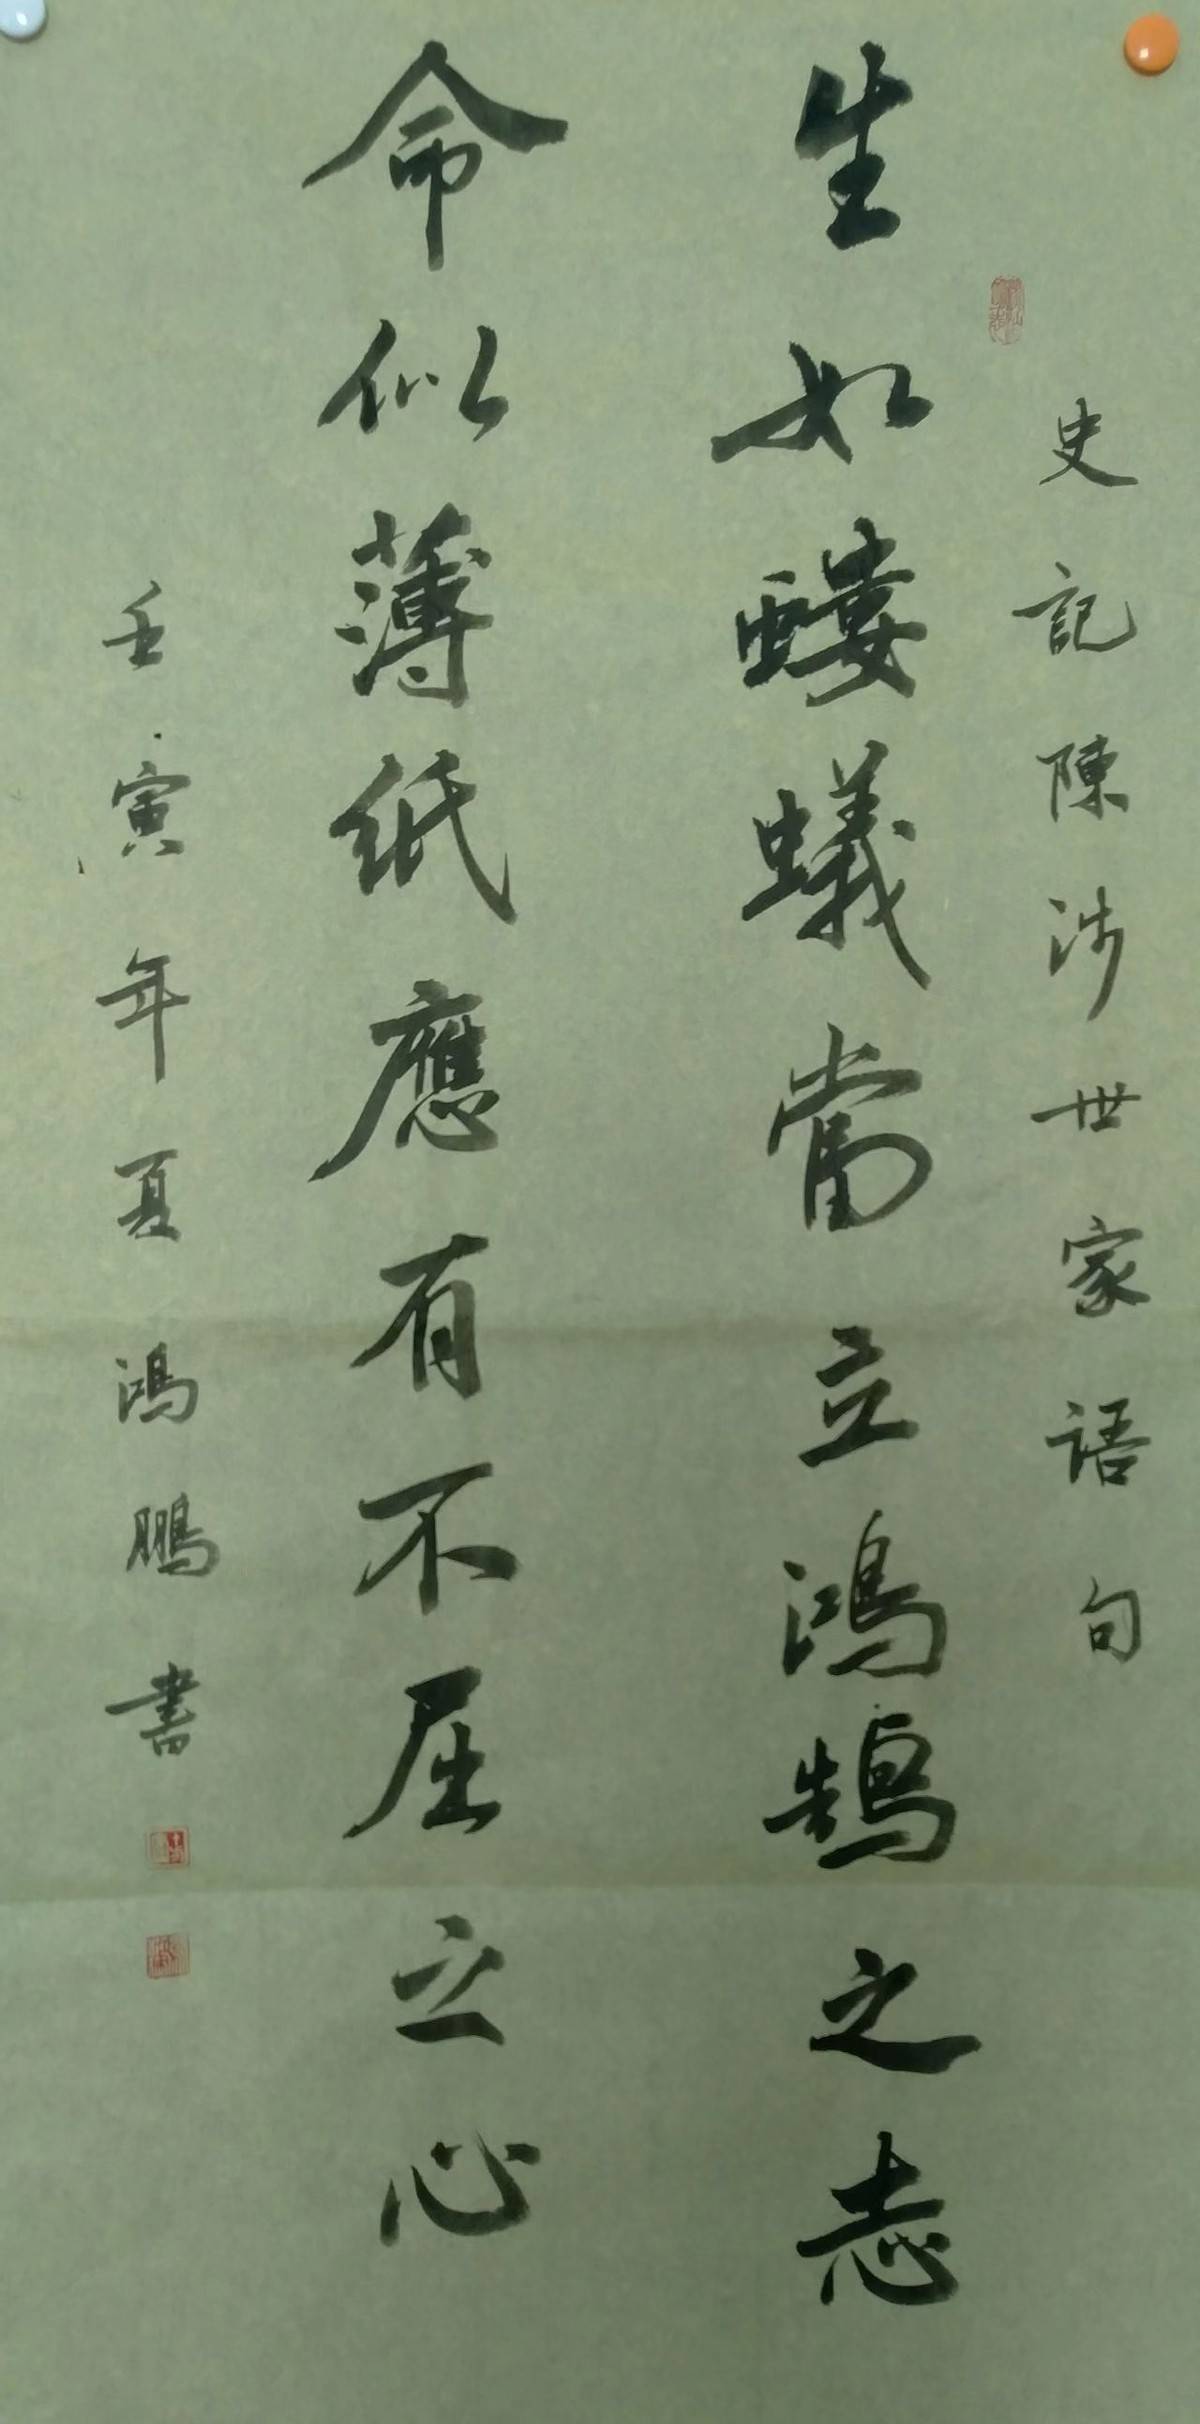 史記陳涉世家語句
生如螻蟻當立鴻鵠之志
命似薄紙應有不屈之心
壬寅年夏鴻鵬書